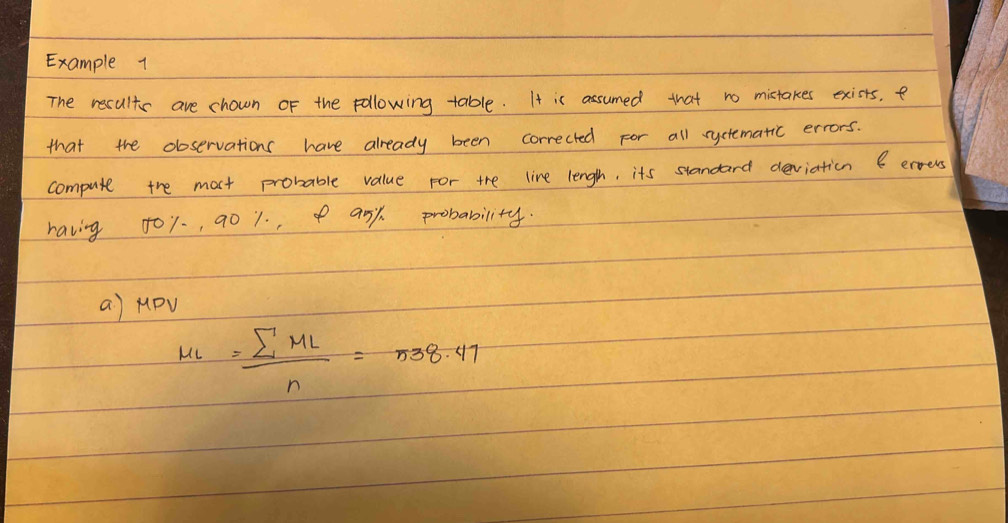 Example 1
The results are shown of the following table. It is assumed that no mistakes exists, &
that the observations have already been corrected for all systematic errors.
compute the most probable value for the line lengh, its standard deviation & errors
having 50%, 90%, & 95% probability.
a) MPV
ML = ∑ ML / n = 538.47